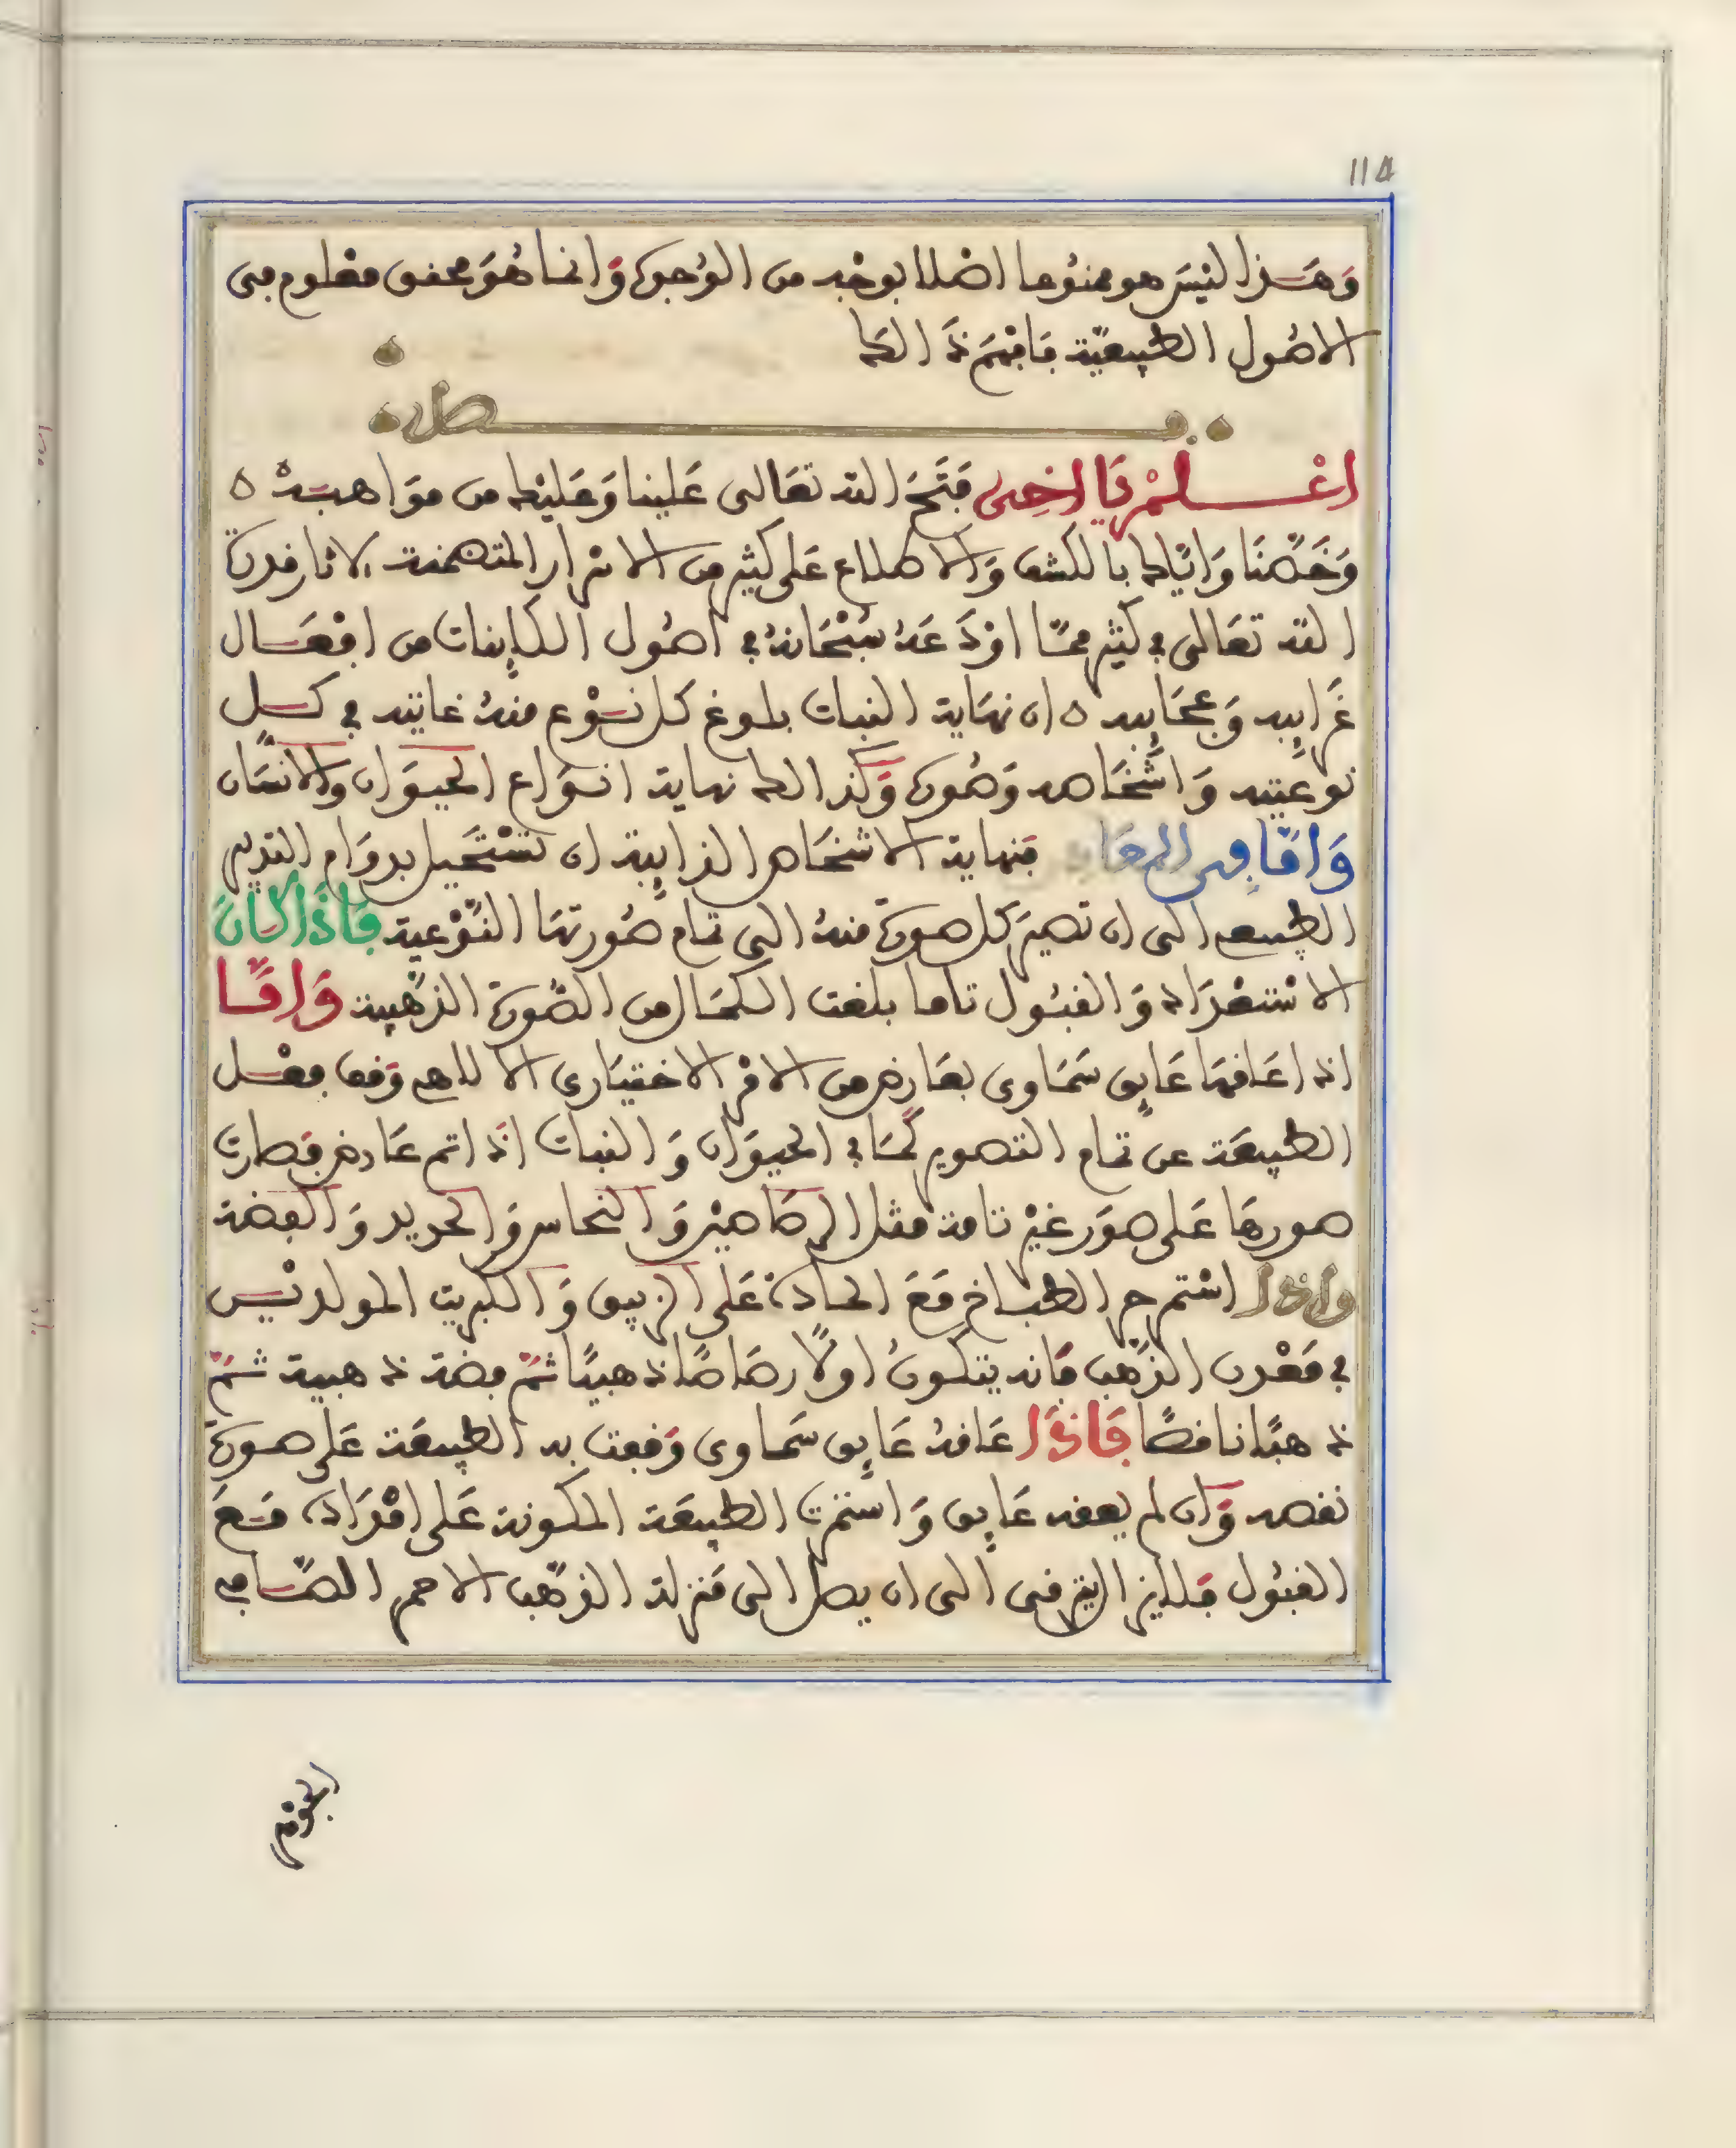 114
وَهَذا ليْسَ هو ممنُوعا اصْلا بوجْه من الوُجوه وَانما هُوَ محقق معْلوم مِن
الاصُول الطبيعيّة فَافهَم ذَالك
فصل
اعْلمْ يَا اخِي فَتَحَ الله تعَالى عَلينا وَعَليْك من موَاهبه
وَخَصّنَا وَايّاك بالكشف وَالاطلاع عَلى كثير من الاسْرار المتضمنة لاثار قدرة
الله تعَالى في كثير ممّا اوْدَعَهُ سُبْحَانهُ في اصُول الكاينات من افْعَال
غَرايبه وَعجَايبه ان نهَاية النبات بلوغ كل نَوْع منهُ غايته في كل
نوعيته وَاشْخَاصه وَصُوره وَكذالك نهاية انوَاع الحيوَان وَالانسَان
وَامّا في المعَادن فنهاية الاشخَاص الذايبة ان تسْتَحيل بدوَام التدبير
الطبيعي الى ان تصيرَ كل صورة منهُ الى تمام صُورتهَا النّوْعية فَاذَا كَانَ
الاسْتعْدَاد وَالقبُول تاما بلغت الكمَال من الصُّورة الذهَبية وَامَّا
اذا عَاقهَا عَايق سَمَاوى بعَارض من الامْر الاختيَارى الالاهي وَقف فعْل
الطبيعَة عن تمام التصوير كمَا في الحيوَان وَالنبات اذَا تم عَارض فصَارت
صورهَا عَلى صوَر غيْر تامة مثل الرصَاصيْن وَالنحاس وَالحديد وَالفضة
واذا اسْتمر حر الطباخ مَعَ المادة عَلى الزيبق وَالكبريت المولديْن
في مَعْدن الذهَب فَانه يتكونُ اولًا رصَاصًا ذهبيًا ثمّ فضة ذهبية ثمّ
ذهبًا ناقصًا فَاذَا عَاقهُ عَايق سَمَاوى وَقفت به الطبيعَة عَلى صورة
نقصه وَان لم يعقه عَايق وَاستمرت الطبيعَة المكونة عَلى امْدَاده مَعَ
القبُول فَلا يزال يترقى الى ان يصل الى مَنزلة الذهَب الاحمر الصَّافي
الجوْهر